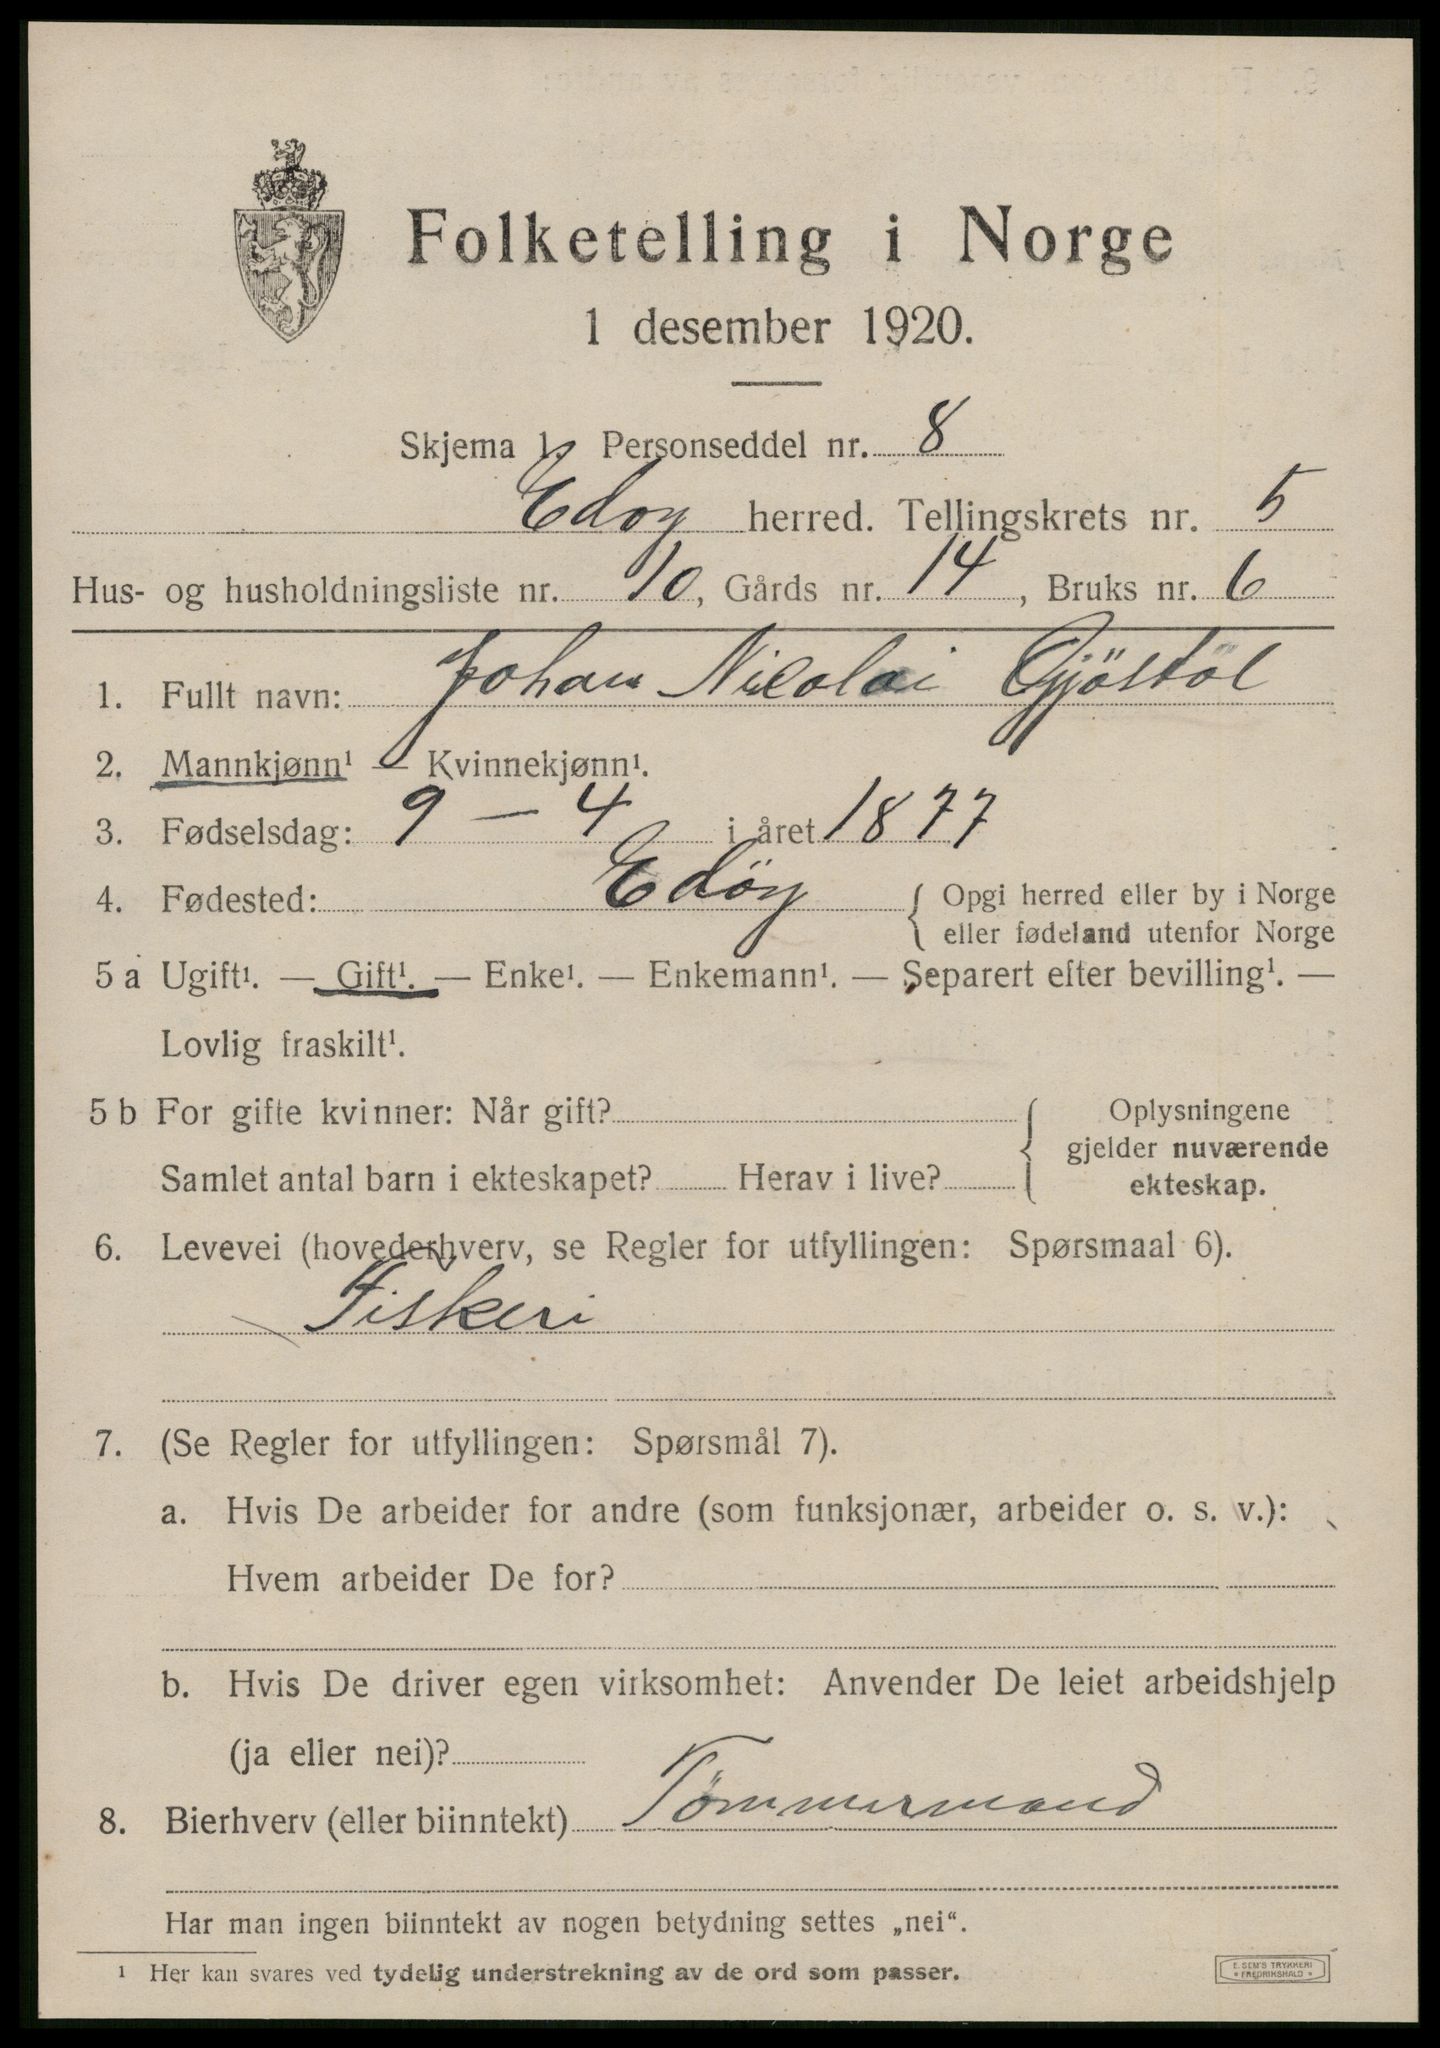 Folketelling i Norge
1 desember 1920.
Skjema 1. Personseddel nr. 8
Edoy herred. Tellingskrets nr. 5
Hus- og husholdningsliste nr. 10, Gårds nr. 14, Bruks nr. 6
1. Fullt navn: Johan Nicolai Gjöstöl
2. Mannkjønn¹ — Kvinnekjønn¹.
3. Fødselsdag: 9 – 4 i året 1877
4. Fødested: Edöy { Opgi herred eller by i Norge
eller fødeland utenfor Norge
5 a Ugift¹. — Gift¹. — Enke¹. — Enkemann¹. — Separert efter bevilling¹. —
Lovlig fraskilt¹.
5 b For gifte kvinner: Når gift? { Oplysningene
gjelder nuværende
Samlet antal barn i ekteskapet? Herav i live? ekteskap.
6. Levevei (hovederhverv, se Regler for utfyllingen: Spørsmaal 6).
Fiskeri
7. (Se Regler for utfyllingen: Spørsmål 7).
a. Hvis De arbeider for andre (som funksjonær, arbeider o. s. v.):
Hvem arbeider De for?
b. Hvis De driver egen virksomhet: Anvender De leiet arbeidshjelp
(ja eller nei)?
8. Bierhverv (eller biinntekt) Tömmermand
Har man ingen biinntekt av nogen betydning settes „nei“.
¹ Her kan svares ved tydelig understrekning av de ord som passer.
E. SEM'S TRYKKERI
* FREDRIKSHALD *